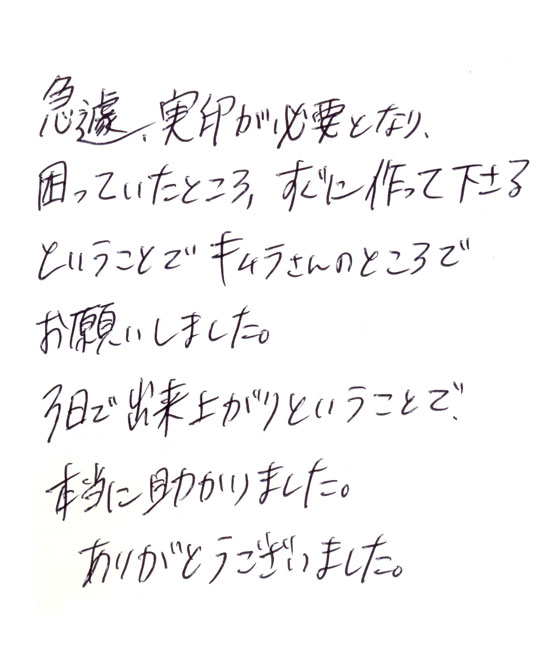 急遽、実印が必要となり、
困っていたところ、すぐに作って下さる
ということでキムラさんのところで
お願いしました。
3日で出来上がりということで、
本当に助かりました。
ありがとうございました。